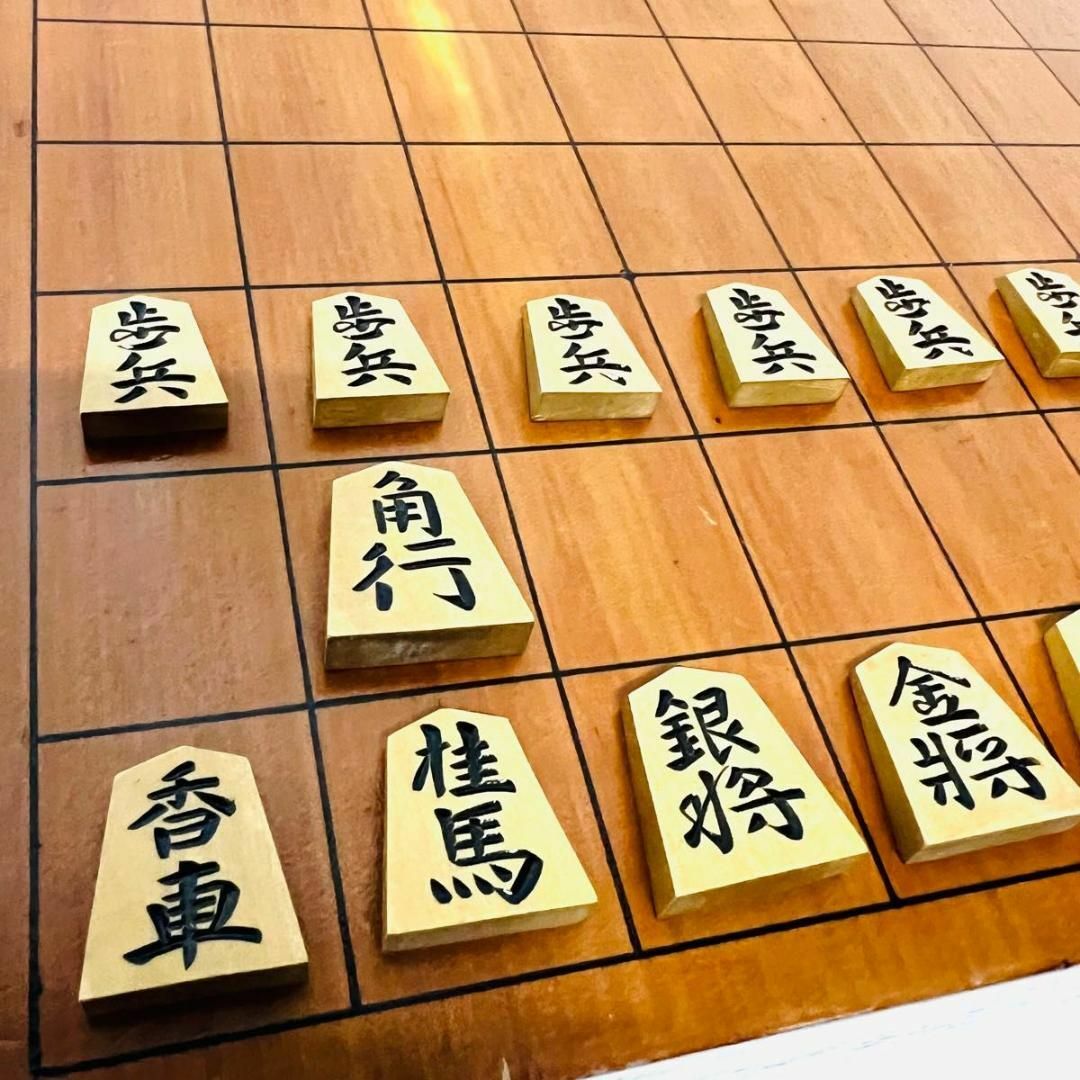 歩兵
歩兵
歩兵
歩兵
歩兵
歩
角行
香車
桂馬
銀将
金将